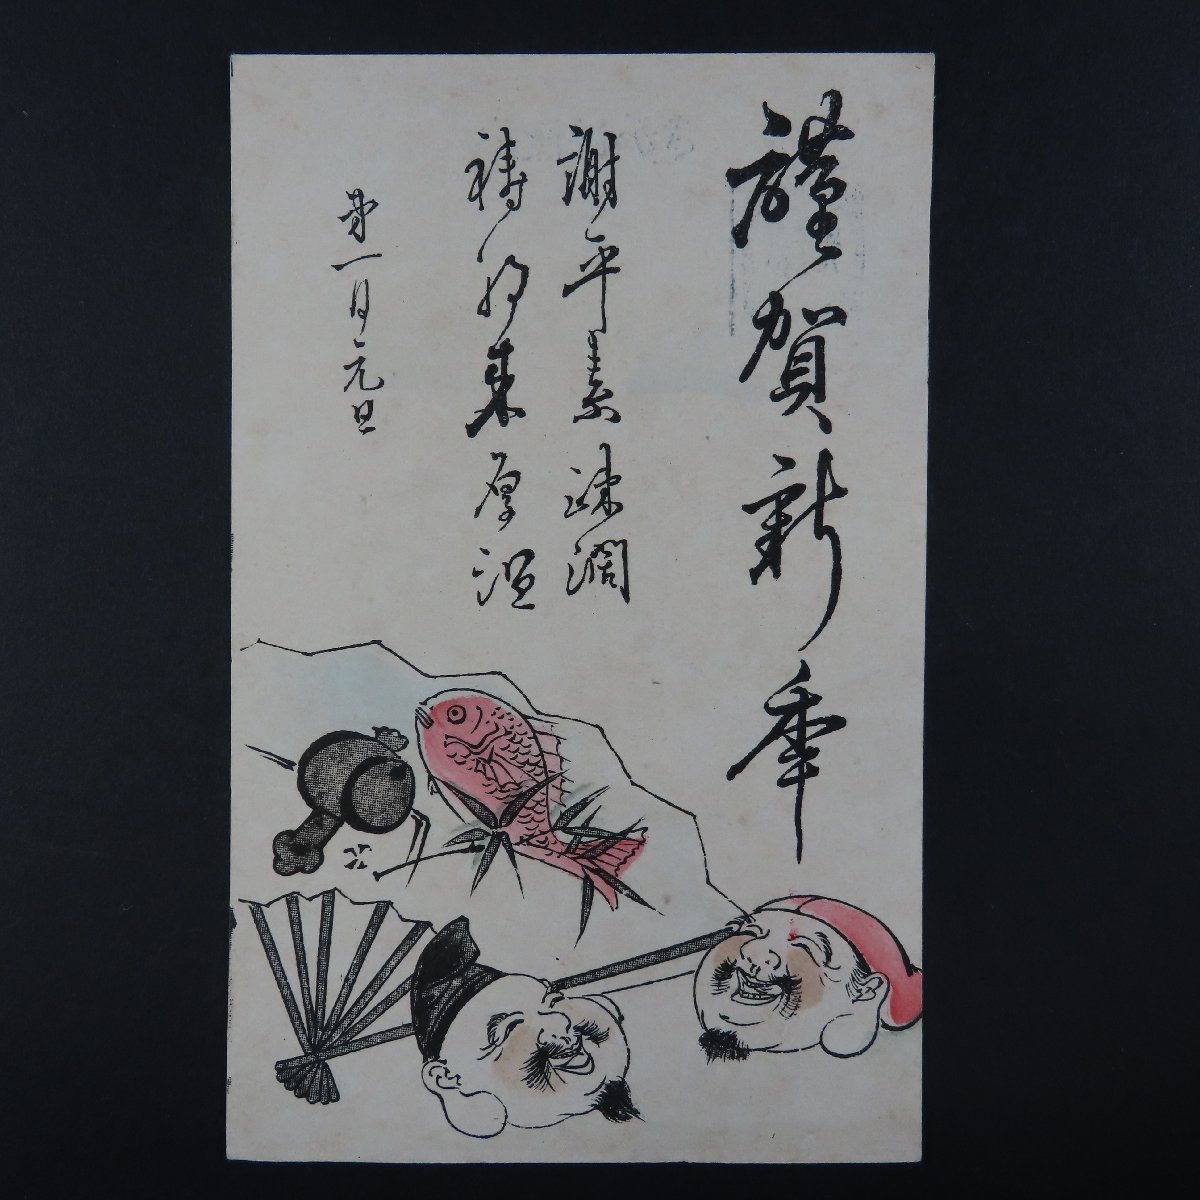 謹賀新年
謝平素疎濶
祷将来厚誼
第一月元旦